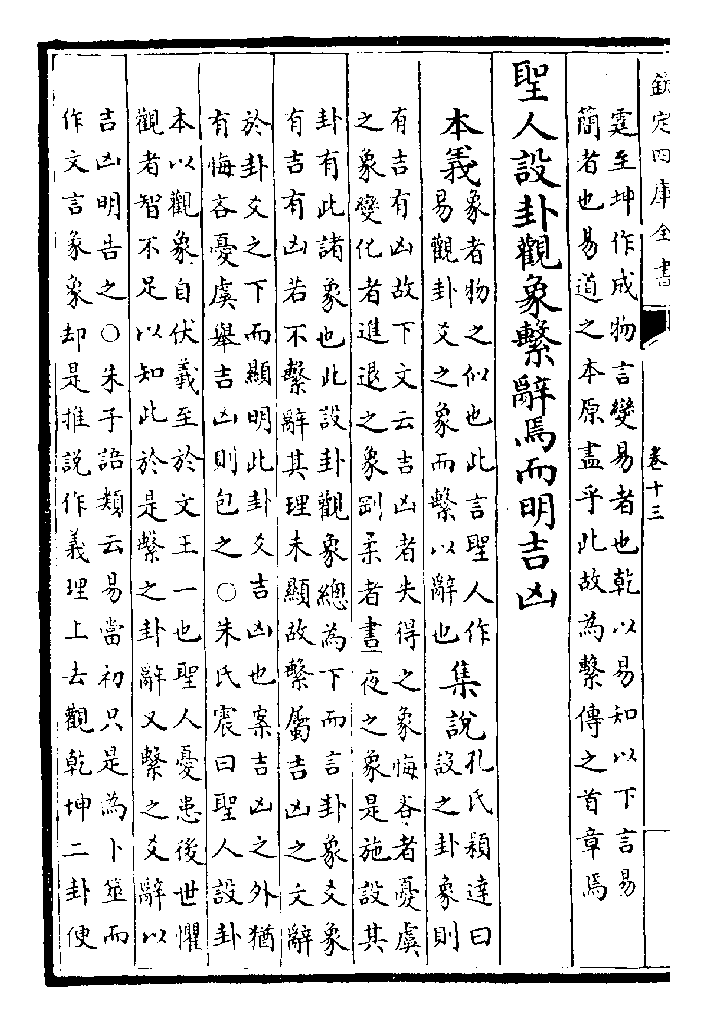 欽定四庫全書
卷十三
霆至坤作成物言變易者也乾以易知以下言易
簡者也易道之本原盡乎此故為繫傳之首章焉
聖人設卦觀象繫辭焉而明吉凶
本義象者物之似也此言聖人作
易觀卦爻之象而繫以辭也集說孔氏穎達曰
設之卦象則
有吉有凶故下文云吉凶者失得之象悔吝者憂虞
之象變化者進退之象剛柔者晝夜之象是施設其
卦有此諸象也此設卦觀象總為下而言卦象爻象
有吉有凶若不繫辭其理未顯故繫屬吉凶之文辭
於卦爻之下而顯明此卦爻吉凶也案吉凶之外猶
有悔吝憂虞舉吉凶則包之○朱氏震曰聖人設卦
本以觀象自伏羲至於文王一也聖人憂患後世懼
觀者智不足以知此於是繫之卦辭又繫之爻辭以
吉凶明告之○朱子語類云易當初只是為卜筮而
作文言彖象却是推說作義理上去觀乾坤二卦便